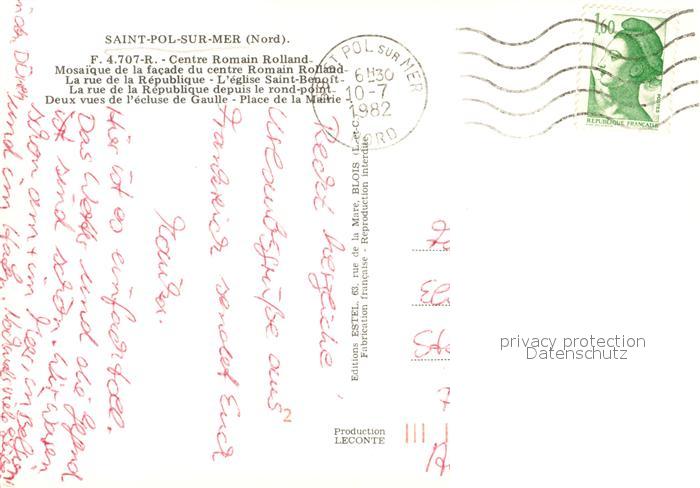 SAINT-POL-SUR-MER (Nord).
F. 4.707-R. - Centre Romain Rolland-
Mosaïque de la façade du centre Romain Rolland-
La rue de la République - L'église Saint-Benoît-
La rue de la République depuis le rond-point-
Deux vues de l'écluse de Gaulle - Place de la Mairie
POL SUR MER
6H30
10-7
1982
NORD
1,60
REPUBLIQUE FRANÇAISE
Recht herzliche
Urlaubsgrüße aus
Frankreich sendet Euch
Hier ist es einfach toll.
Das Wetter und die Gegend
ist sind schön. Wir waren
schon am + im Meer, in
und im
Editions ESTEL, 63, rue de la Mare, BLOIS
Fabrication française - Reproduction interdite
2
Production
LECONTE
privacy protection
Datenschutz